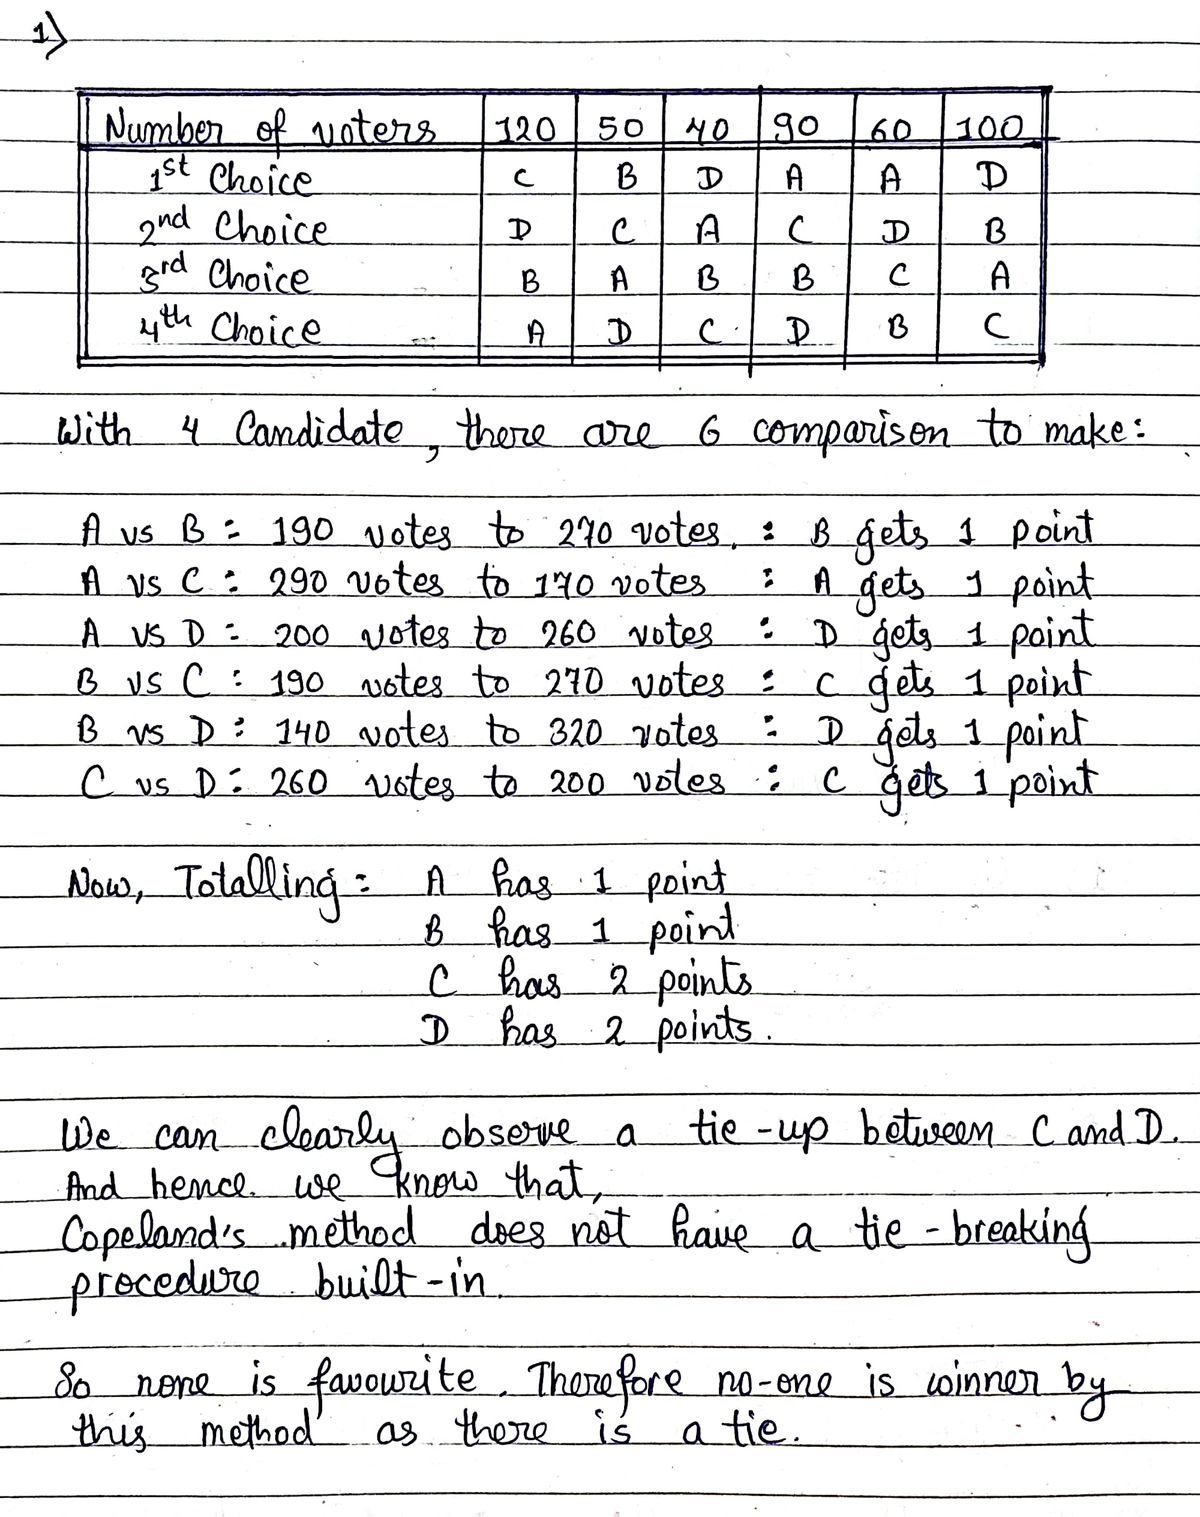 1)
Number of voters 120 50 40 90 60 100
1st Choice C B D A A D
2nd Choice D C A C D B
3rd Choice B A B B C A
4th Choice A D C D B C
With 4 Candidate, there are 6 comparison to make:
A vs B: 190 votes to 270 votes. : B gets 1 point
A vs C: 290 votes to 170 votes : A gets 1 point
A vs D: 200 votes to 260 votes : D gets 1 point
B vs C: 190 votes to 270 votes : C gets 1 point
B vs D: 140 votes to 320 votes : D gets 1 point
C vs D: 260 votes to 200 votes : C gets 1 point
Now, Totalling: A has 1 point
B has 1 point
C has 2 points
D has 2 points.
We can clearly observe a tie-up between C and D.
And hence we know that,
Copeland's method does not have a tie-breaking
procedure built-in.
So none is favourite. Therefore no-one is winner by
this method as there is a tie.